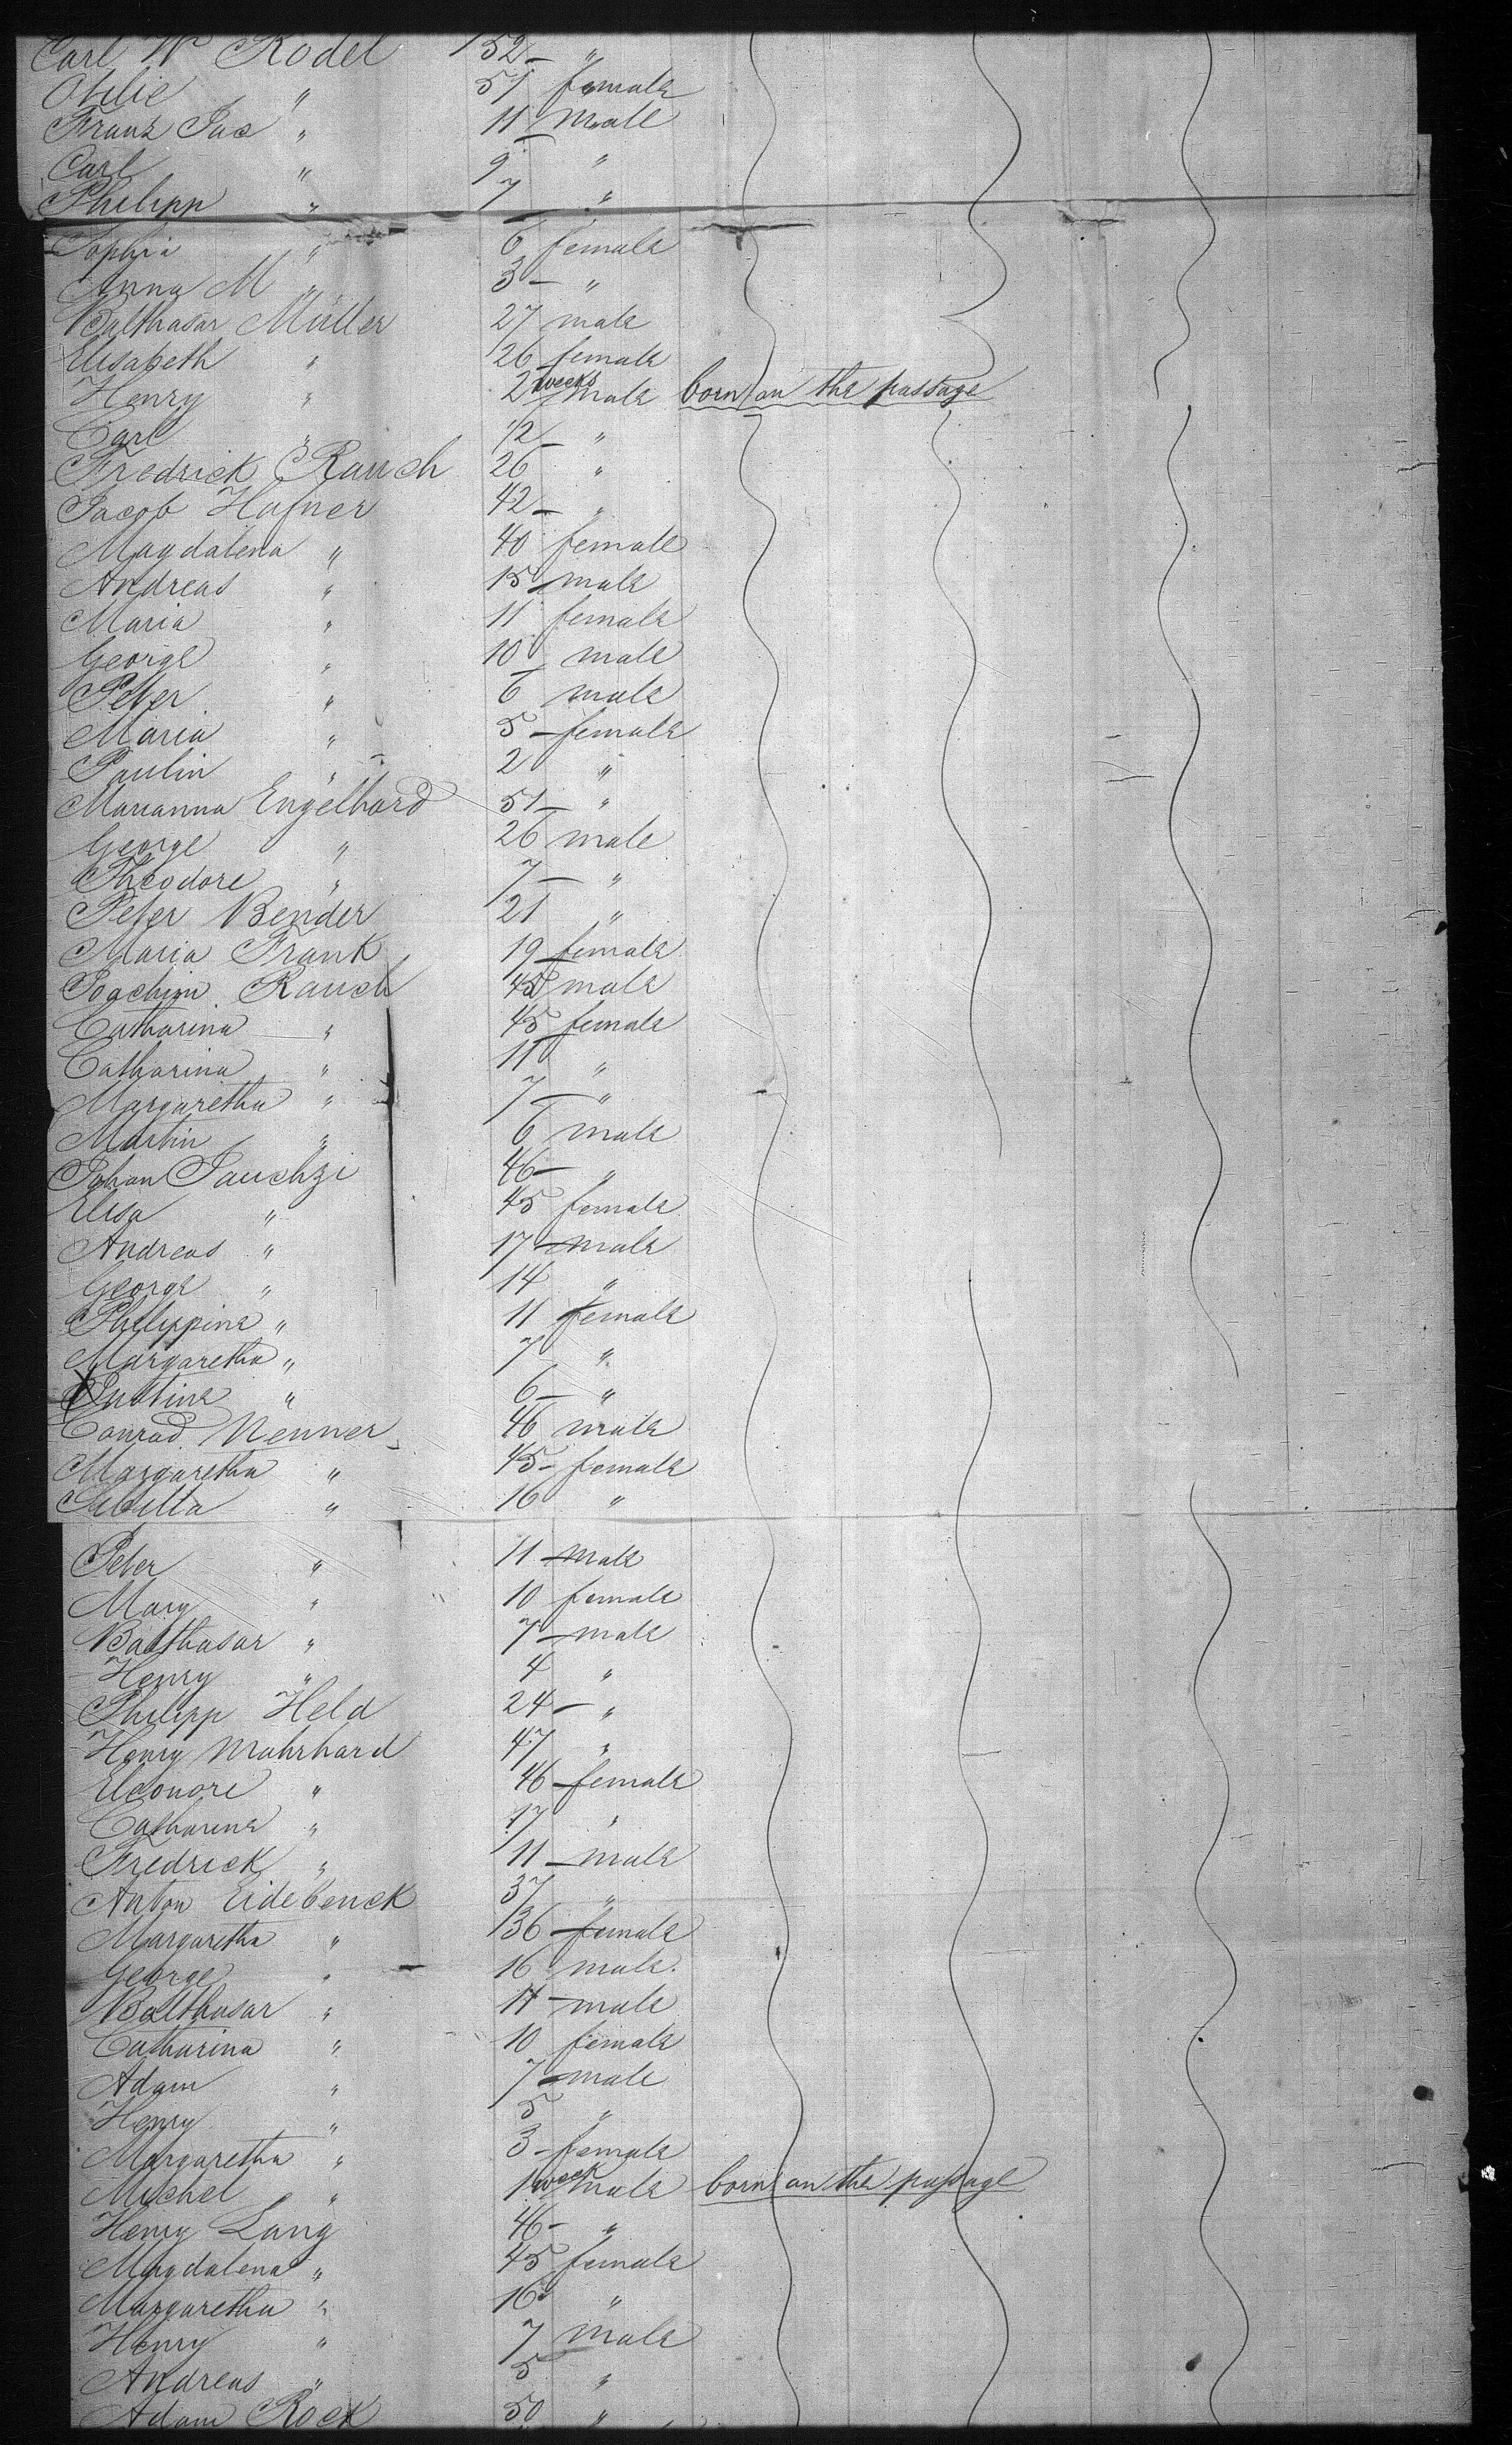 Carl W Rodel 52 "
Otilie " 51 female
Franz Jac " 11 male
Carl " 9 "
Philipp " 7 "
Sophia " 6 female
Anna M " 3 "
Balthasar Müller 27 male
Elisabeth " 26 female
Henry " 2 weeks male born on the passage
Carl " 1/2 "
Fredrick Rauch 26 "
Jacob Hafner 42 "
Magdalena " 40 female
Andreas " 15 male
Maria " 11 female
George " 10 male
Peter " 6 male
Maria " 5 female
Paulin " 2 "
Marianna Engelhard 51 "
George " 26 male
Theodore " 7 "
Peter Bender 21 "
Maria Frank 19 female
Joachim Rauch 45 male
Catharina " 45 female
Catharina " 11 "
Margaretha " 7 "
Martin " 6 male
Johan Jauchzi 46 "
Elisa " 45 female
Andreas " 17 male
George " 14 "
Philippine " 11 female
Margaretha " 7 "
Justine " 6 "
Conrad Nenner 46 male
Margaretha " 45 female
Sibilla " 16 "
Peter " 11 male
Mary " 10 female
Balthasar " 7 male
Henry " 4 "
Philipp Held 24 "
Henry Mahrhard 47 "
Eleonore " 46 female
Catharina " 17 "
Fredrick " 11 male
Anton Eidebenck 37 "
Margaretha " 36 female
George " 16 male
Balthasar " male
Catharina " 10 female
Adam " 7 male
Henry " 5 "
Margaretha " 3 female
Michel " 1 week male born on the passage
Henry Lang 46 "
Magdalena " 45 female
Margaretha " 16 "
Henry " 7 male
Andreas " 5 "
Adam Rock 50 "